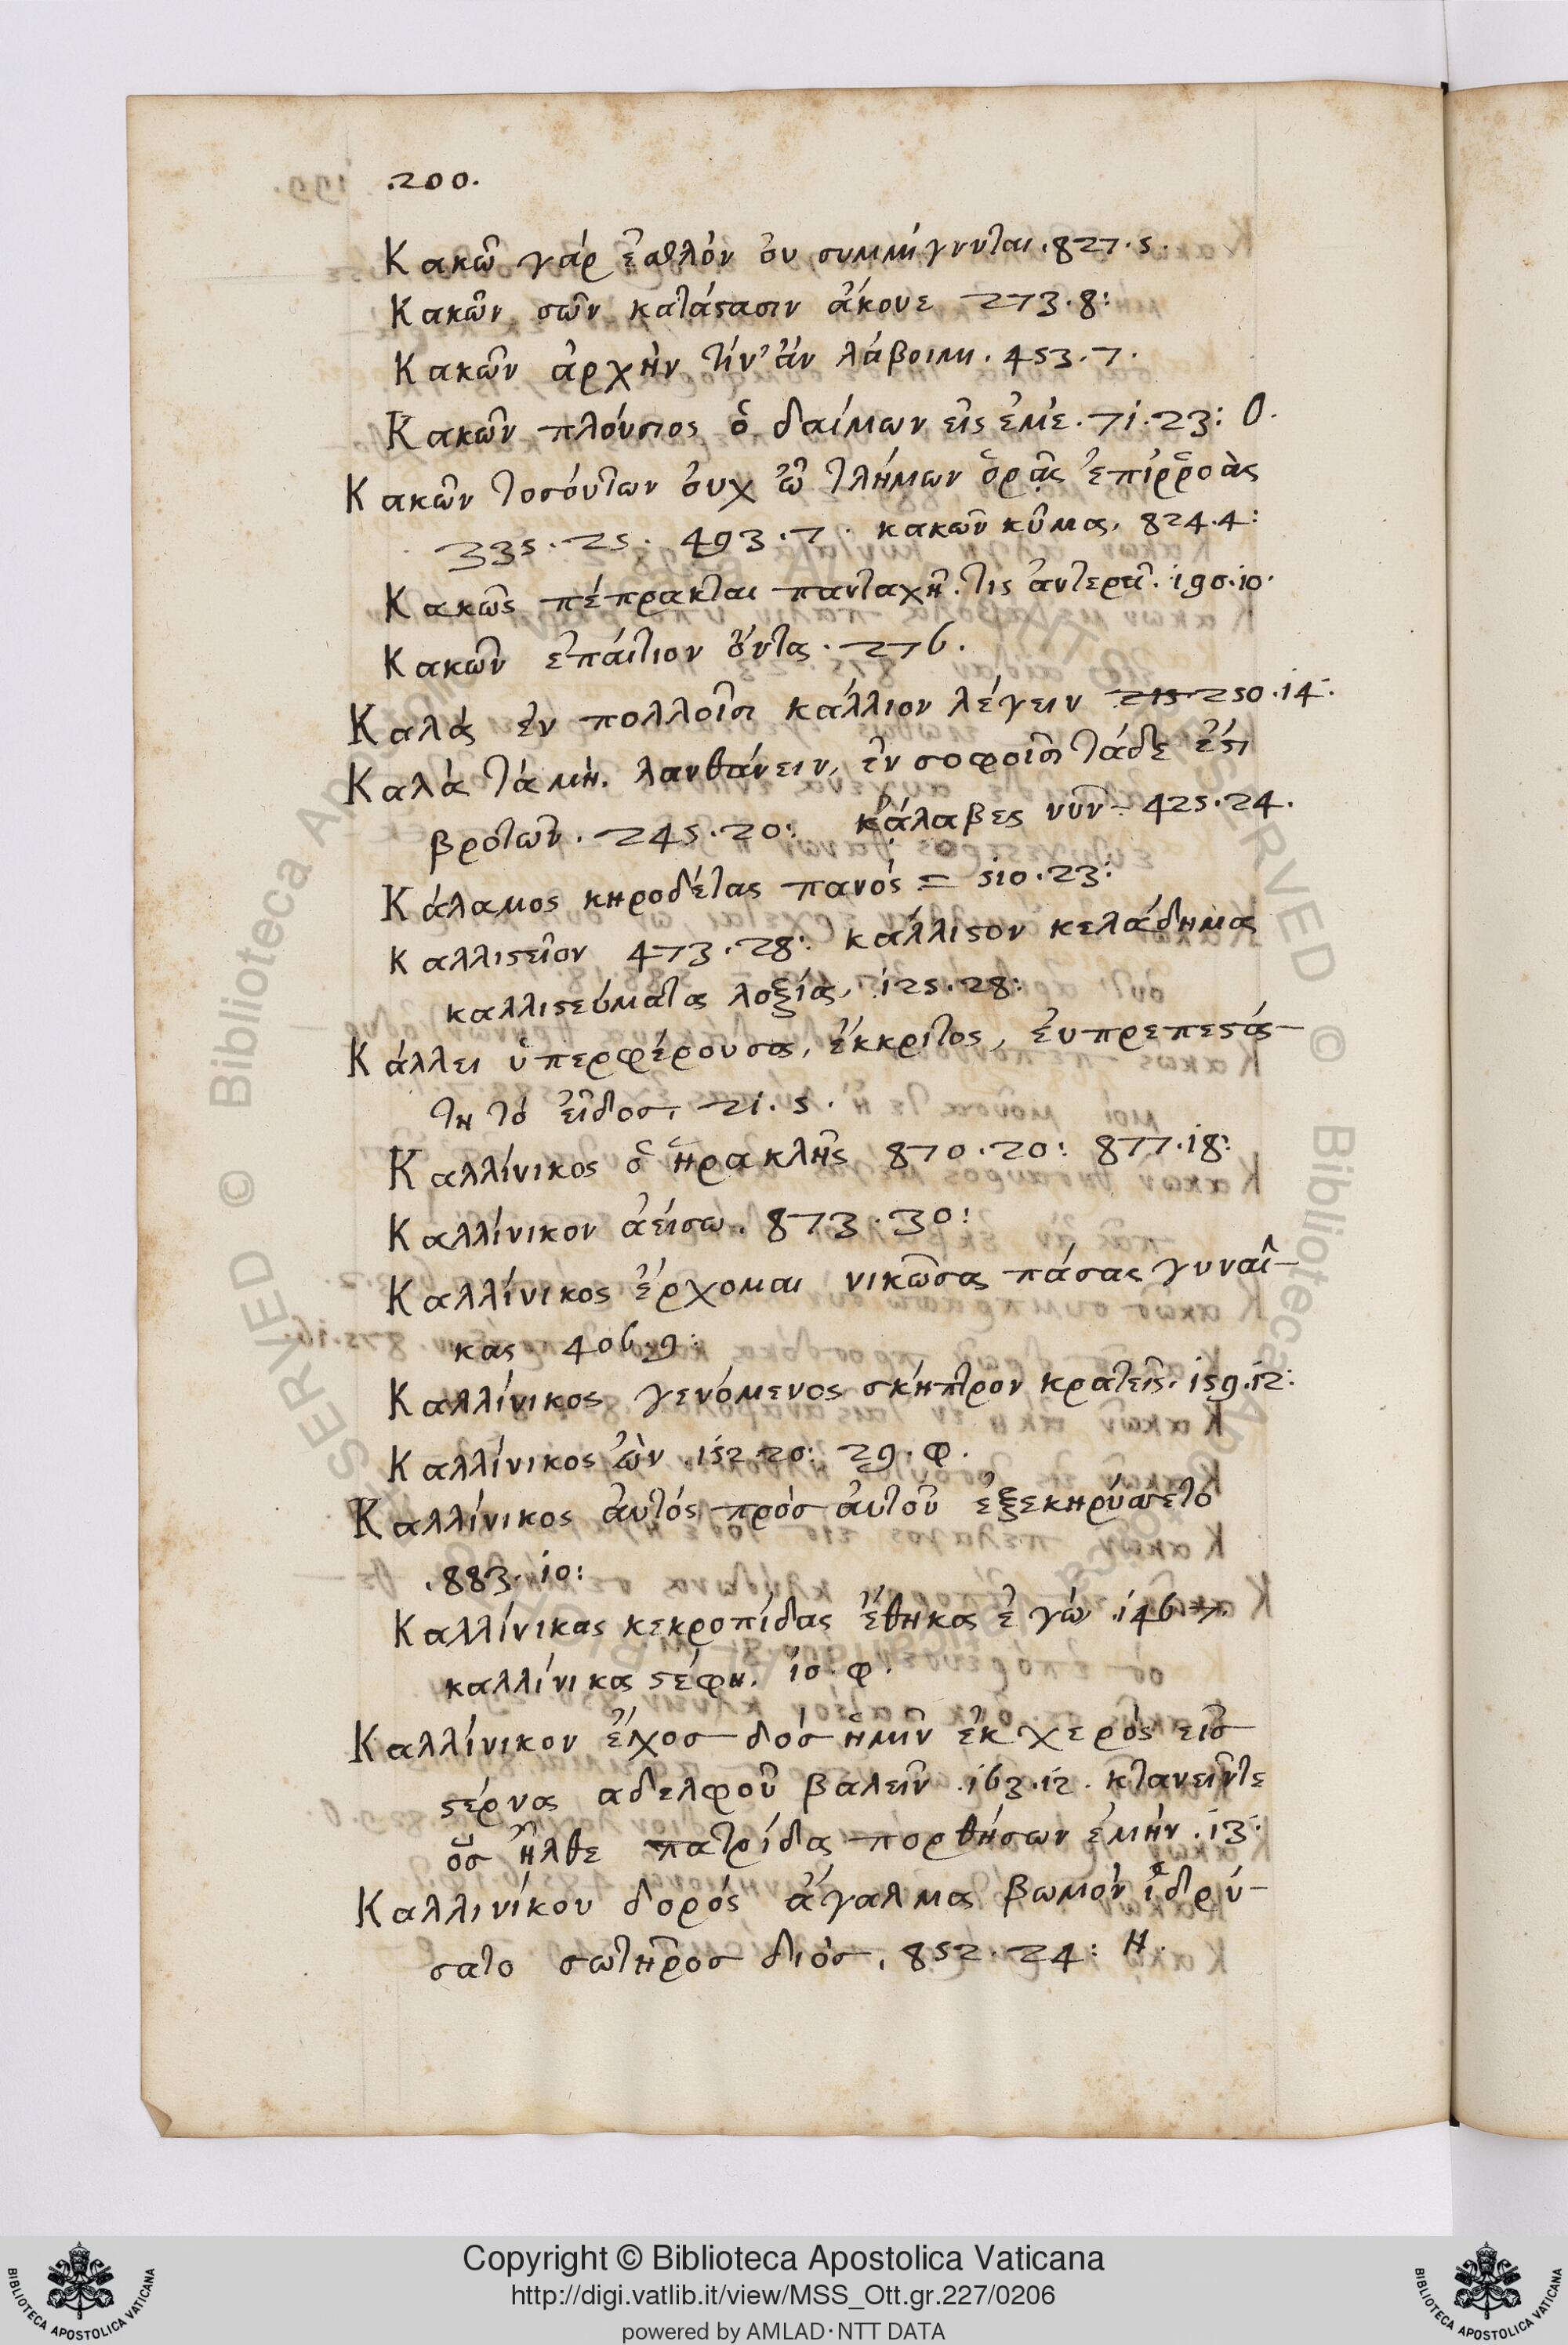 .200.
Κακῶ γάρ ἐσθλόν ὀυ συμμίγνυται. 827.5.
Κακῶν σῶν κατάστασιν ἄκουε 273.8:
Κακῶν ἀρχὴν τίν' ἄν λάβοιμι. 453.7.
Κακῶν πλόυσιος ὁ δαίμων εἰς ἐμέ. 71.23: 0.
Κακῶν τοσόυτων ὀυχ ὦ τλήμων ὁρᾶς ἐπιρροὰς
335.25. 493.7. κακῶν κῦμα, 824.4:
Κακῶς πέπρακται πανταχῆ. τις ἀντερεῖ. 190.10.
Κακῶν ἐπάιτιον ὄντα. 276.
Καλά ἐν πολλοῖσι κάλλιον λέγειν 250.14.
Καλά τά μή. λανθάνειν, ἐν σοφοῖσι τάδε ἐστι
βροτῶν. 245.20: κάλαβες νῦν - 425.24.
Κάλαμος κηροδέτας πανός = 510.23:
Καλλιστεῖον 473.28: κάλλιστον κελάδημα
καλλιστεύματα λοξία, 125.28:
Κάλλει ὑπερφέρουσα, ἔκκριτος, ἐυπρεπεστά-
τη τό εἶδος, 21.5.
Καλλίνικος ὁ ἡρακλῆς 870.20: 877.18:
Καλλίνικον ἀείσω. 873.30:
Καλλίνικος ἔρχομαι νικῶσα πάσας γυναῖ-
κας 406.9:
Καλλίνικος γενόμενος σκῆπτρον κρατεῖς. 159.12:
Καλλίνικος ὢν .152.20: 29.φ.
Καλλίνικος ἀυτός πρός ἀυτοῦ ἐξεκηρύσσετο
.883.10:
Καλλίνικας κεκροπίδας ἔθηκα ἐγώ .146
καλλίνικα στέφη. 10.φ.
Καλλίνικον ἔγχος δός ἡμῖν ἐκ χερός εἰς
στέρνα αδελφοῦ βαλεῖν .163.12. κτανεῖντε
ὅς ἦλθε πατρίδα πορθήσων ἐμήν. 13:
Καλλινίκου δορός ἄγαλμα βωμόν ἱδρύ-
σατο σωτῆρος διός, 852.24: Η.
Copyright © Biblioteca Apostolica Vaticana
http://digi.vatlib.it/view/MSS_Ott.gr.227/0206
powered by AMLAD·NTT DATA
BIBLIOTECA APOSTOLICA VATICANA
BIBLIOTECA APOSTOLICA VATICANA